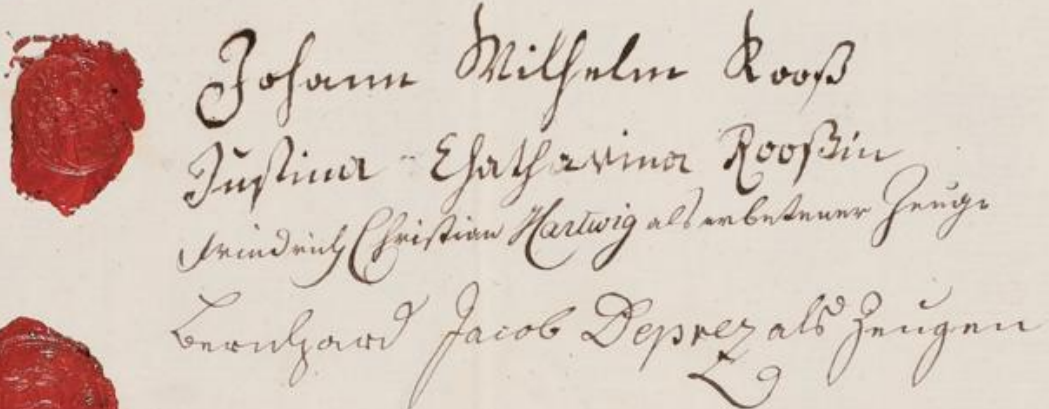 Johann Wilhelm Rooß
Justina Chatharina Rooßin
Friedrich Christian Hartwig als erbetener Zeuge
Bernhard Jacob Deprez als Zeugen